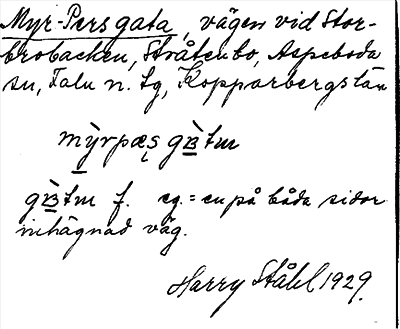 Myr-Pers gata, vägen vid Stor-
brobacken, Stråtenbo, Aspeboda
sn, Falu n. tg, Kopparbergs län
mỳrpæș gàtın
gàtın f. eg. = en på båda sidor
inhägnad väg.
Harry Ståhl 1929.